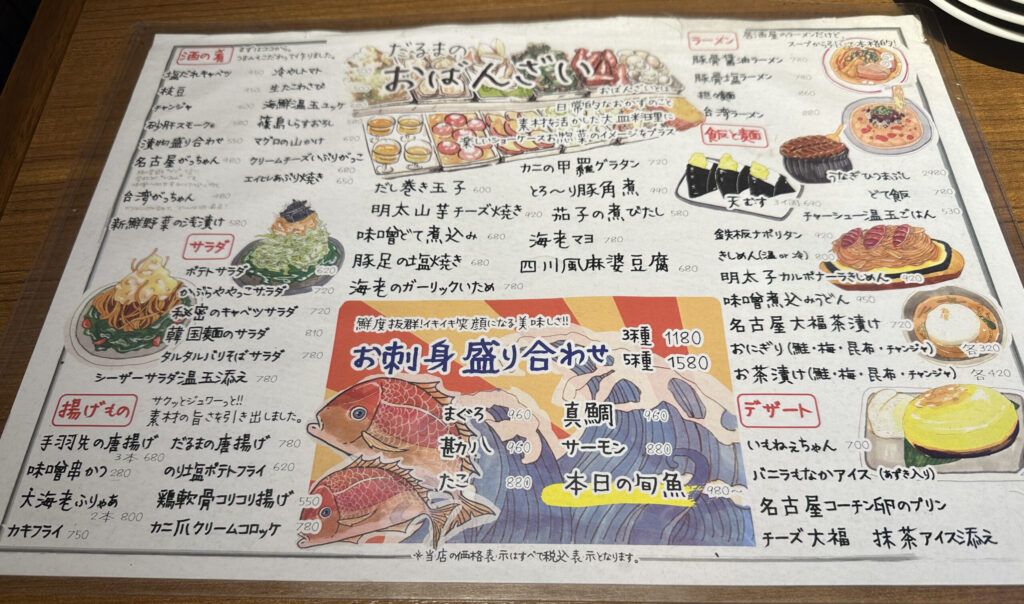 酒の肴
まずはココから。
うまいもんこだわって作りました。
塩だれキャベツ 450 冷やしトマト
枝豆 生たこわさび
チャンジャ 海鮮温玉ユッケ
砂肝スモーク 篠島しらすおろし
漬物盛り合わせ 550 マグロの山かけ 620
名古屋がっちゃん 480 クリームチーズいぶりがっこ 680
エイヒレあぶり焼き 650
台湾がっちゃん
新鮮野菜の浅漬け 580
サラダ
ポテトサラダ 620
かぶらややっこサラダ 720
秘密のキャベツサラダ 720
韓国麺のサラダ 810
タルタルバリそばサラダ 780
シーザーサラダ温玉添え 780
揚げもの
サクッとジュワーっと!!
素材の旨さを引き出しました。
手羽先の唐揚げ 3本 680
だるまの唐揚げ 780
味噌串かつ 280 のり塩ポテトフライ 620
大海老ふりゃあ 2本 800
鶏軟骨コリコリ揚げ 550
カキフライ 750 カニ爪クリームコロッケ 780
だるまの
おばんざい
おばんざいとは
日常的なおかずのこと
素材を活かした大皿料理に
カニの甲羅グラタン 720
だし巻き玉子 600 とろ〜り豚角煮 990
明太山芋チーズ焼き 920 茄子の煮びたし 580
味噌どて煮込み 680 海老マヨ 780
豚足の塩焼き 680 四川風麻婆豆腐 680
海老のガーリックいため 780
鮮度抜群!イキイキ笑顔になる美味しさ!!
お刺身盛り合わせ
3種 1180
5種 1580
まぐろ 960 真鯛 960
甚八 960 サーモン 880
たこ 880 本日の旬魚 980〜
※当店の価格表示はすべて税込表示となります。
ラーメン
居酒屋のラーメンだけど、
スープから引いて本格的!
豚骨醤油ラーメン 780
豚骨塩ラーメン 780
担々麺 860
台湾ラーメン 880
飯と麺
うなぎひつまぶし 2980
天むす 3ヶ 690
どて飯 780
チャーシュー温玉ごはん 530
鉄板ナポリタン 920
きしめん(温or冷) 800
明太子カルボナーラきしめん 920
味噌煮込みうどん 950
名古屋大福茶漬け 720
おにぎり(鮭・梅・昆布・チャンジャ) 各320
お茶漬け(鮭・梅・昆布・チャンジャ) 各420
デザート
いもねぇちゃん 700
バニラもなかアイス(あずき入り)
名古屋コーチン卵のプリン
チーズ大福 抹茶アイス添え